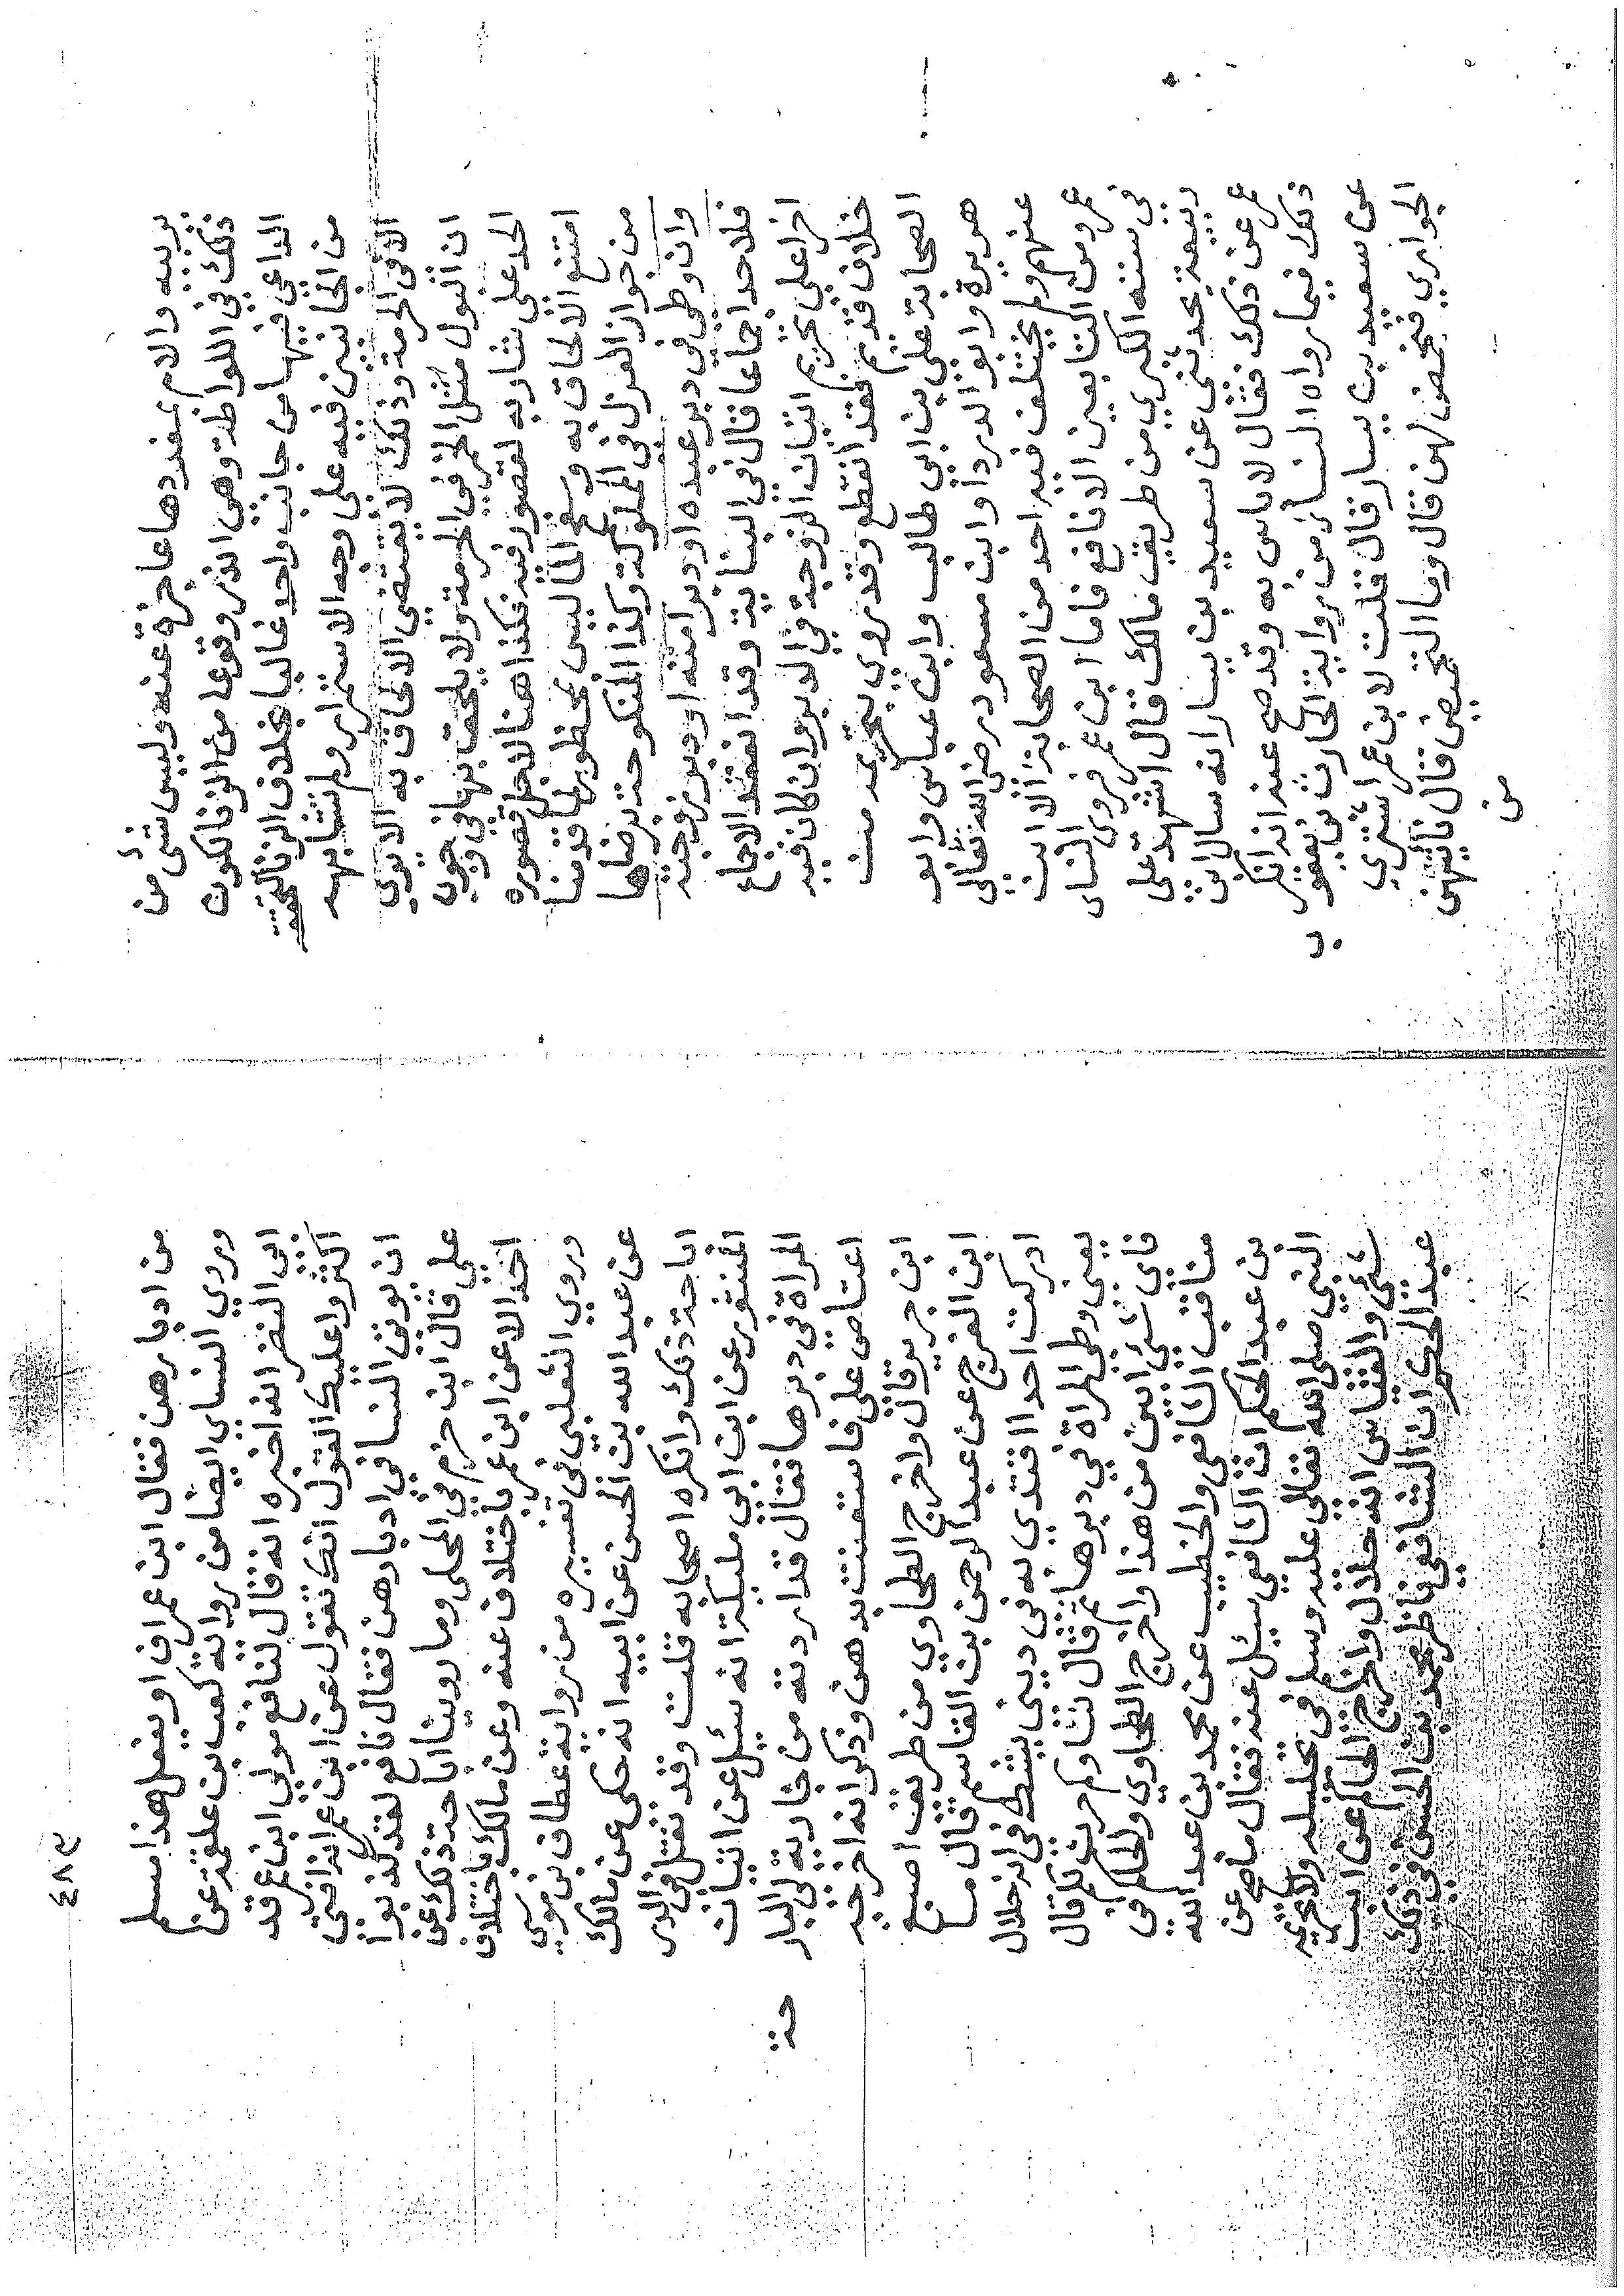 يربيه والام بمفردها عاجزة عنه وليس شئ من
ذلك في اللواطة وهي اندر وقوعا من الزنا لكون
الداعي فيها من جانب واحد غالبا بخلاف الزنا لتحققه
من الجانبين فيه على وجه الاستمرار ولم تشابهه
الا في الحرمة وذلك لا يقتضي الالحاق به الا يرى
ان البول مثل الخمر في الحرمة ولا يلحق بها في وجوب
الحد على شاربه لقصور فيه فكذا هنا لاجل قصوره
امتنع الالحاق به ليس بمحظور لما قدمنا
من جواز العزل في المملوكة وكذا المنكوحة برضاها
وان وطئ في دبر عبده او دبر امته او دبر زوجته
فلا حد اجماعا قال في البناية وقد انعقد الاجماع
اخرا على تحريم اتيان الزوجة في الدبر وان كان فيه
خلاف قديم فقد انقطع وقد روي تحريمه من
الصحابة علي بن ابي طالب وابن عباس وابو
هريرة وابو الدرداء وابن مسعود رضي الله تعالى
عنهم ولم يختلف فيه احد من الصحابة الا ابن
عمر ومن التابعين الا نافع فاما ابن عمر فروى النساي
في سننه الكبري من طريق مالك قال اشهد على
ربيعة يحدثني عن سعيد بن يسار انه سال ابن
عمر عن ذلك فقال لا باس به وقد صح عنه انه انكر
ذلك فيما رواه النساي من رواية الحارث بن يعقوب
عن سعيد بن يسار قال قلت لابن عمر اشتري
الجواري فنحمض لهن قال وما التحميض قال ناتيهن
من
٤٨٩
من ادبارهن فقال ابن عمر اف اويفعل هذا مسلم
وروي النساي ايضا من رواية كعب بن علقمة عن
ابي النضر انه اخبره انه قال لنافع مولي ابن عمر قد
اكثروا عليك القول انك تقول عن ابن عمر انه افتى
ان يوتى النسا في ادبارهن فقال نافع لقد كذبوا
علي قال ابن حزم في المحلى وما روينا اباحة ذلك عن
احد الا عن ابن عمر باختلاف عنه وعن مالك باختلاف
وروي الثعلبي في تفسيره من رواية عطاف بن موسى
عن عبد الله بن الحسن عن ابيه انه حكى عن مالك
اباحة ذلك وانكره اصحابه قلت وقد نقل في الدر
المنثور عن ابن ابي مليكة انه سئل عن اتيان
المراة في دبرها فقال قد اردته من جارية لي البار
حة
اعتاص علي فاستعنت بدهن وذكر انه اخرجه
ابن جرير قال واخرج الطحاوي من طريق اصبغ
ابن الفرج عن عبد الرحمن بن القاسم قال ما
ادركت احدا اقتدي به في ديني يشك في انه حلال
يعني وطئ المراة في دبرها ثم قال نساوكم حرث لكم قال
فاي شئ ابين من هذا واخرج الطحاوي والحاكم في
مناقب الشافعي والخطيب عن محمد بن عبد الله
بن عبد الحكم ان الشافعي سئل عنه فقال ما صح عن
النبي صلى الله تعالى عليه وسلم في تحليله ولا تحريمه
شئ والقياس انه حلال واخرج الحاكم عن ابن
عبد الحكم ان الشافعي ناظر محمد بن الحسن في ذلك